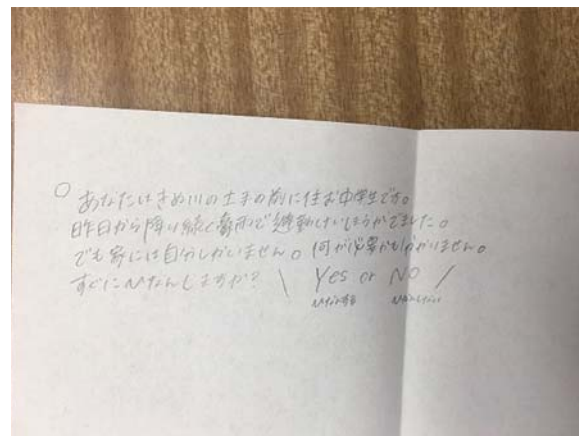 ○ あなたはきぬ川の土手の前に住む中学生です。
昨日から降り続く豪雨で避難けいほうがでました。
でも家には自分しかいません。何が必要かも分かりません。
すぐにひなんしますか? \ Yes or No /
ひなんする ひなんしない